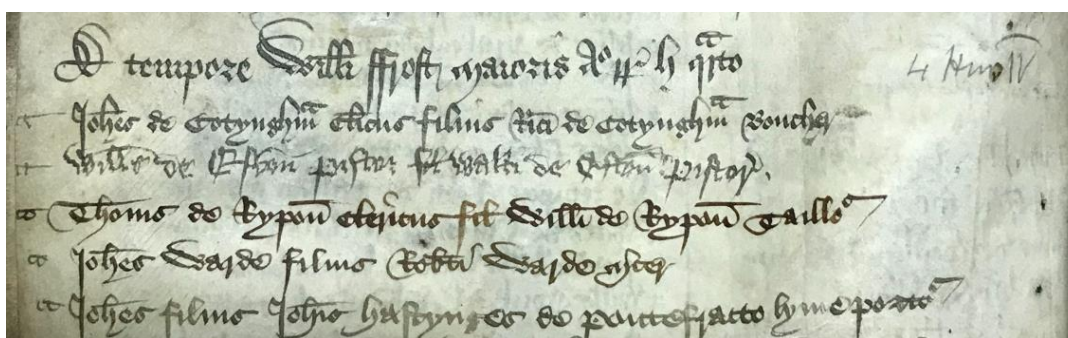 De tempore Willi ffrost maioris Ao rr h qarto 4 Hen IV
Johes de Cotynghm clicus filius Rici de Cotynghm Boucher
Wills de Eston pistor fil Walti de Eston pistor.
Thoms de Rypon clericus fil Willi de Rypon Taillor
Johes Warde filius Robti Warde
Johes filius Johis hastynges de pontefracto lymeporter